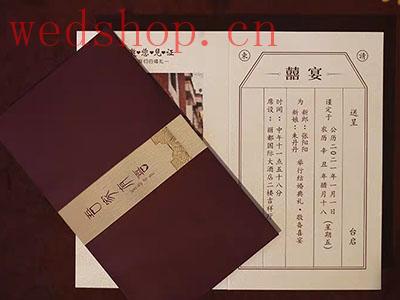 wedshop.cn
您♥见♥证
們的婚礼
請柬
囍宴
送呈 台启
谨定于 公历二〇二一年一月一日
农历 辛丑年腊月十八 (星期五)
为 新郎：张阳阳
新娘：朱丹丹 举行结婚典礼·敬备喜宴
时间：中午十一点五十八分
席设：丽都国际大酒店二楼吉祥
吾家有喜